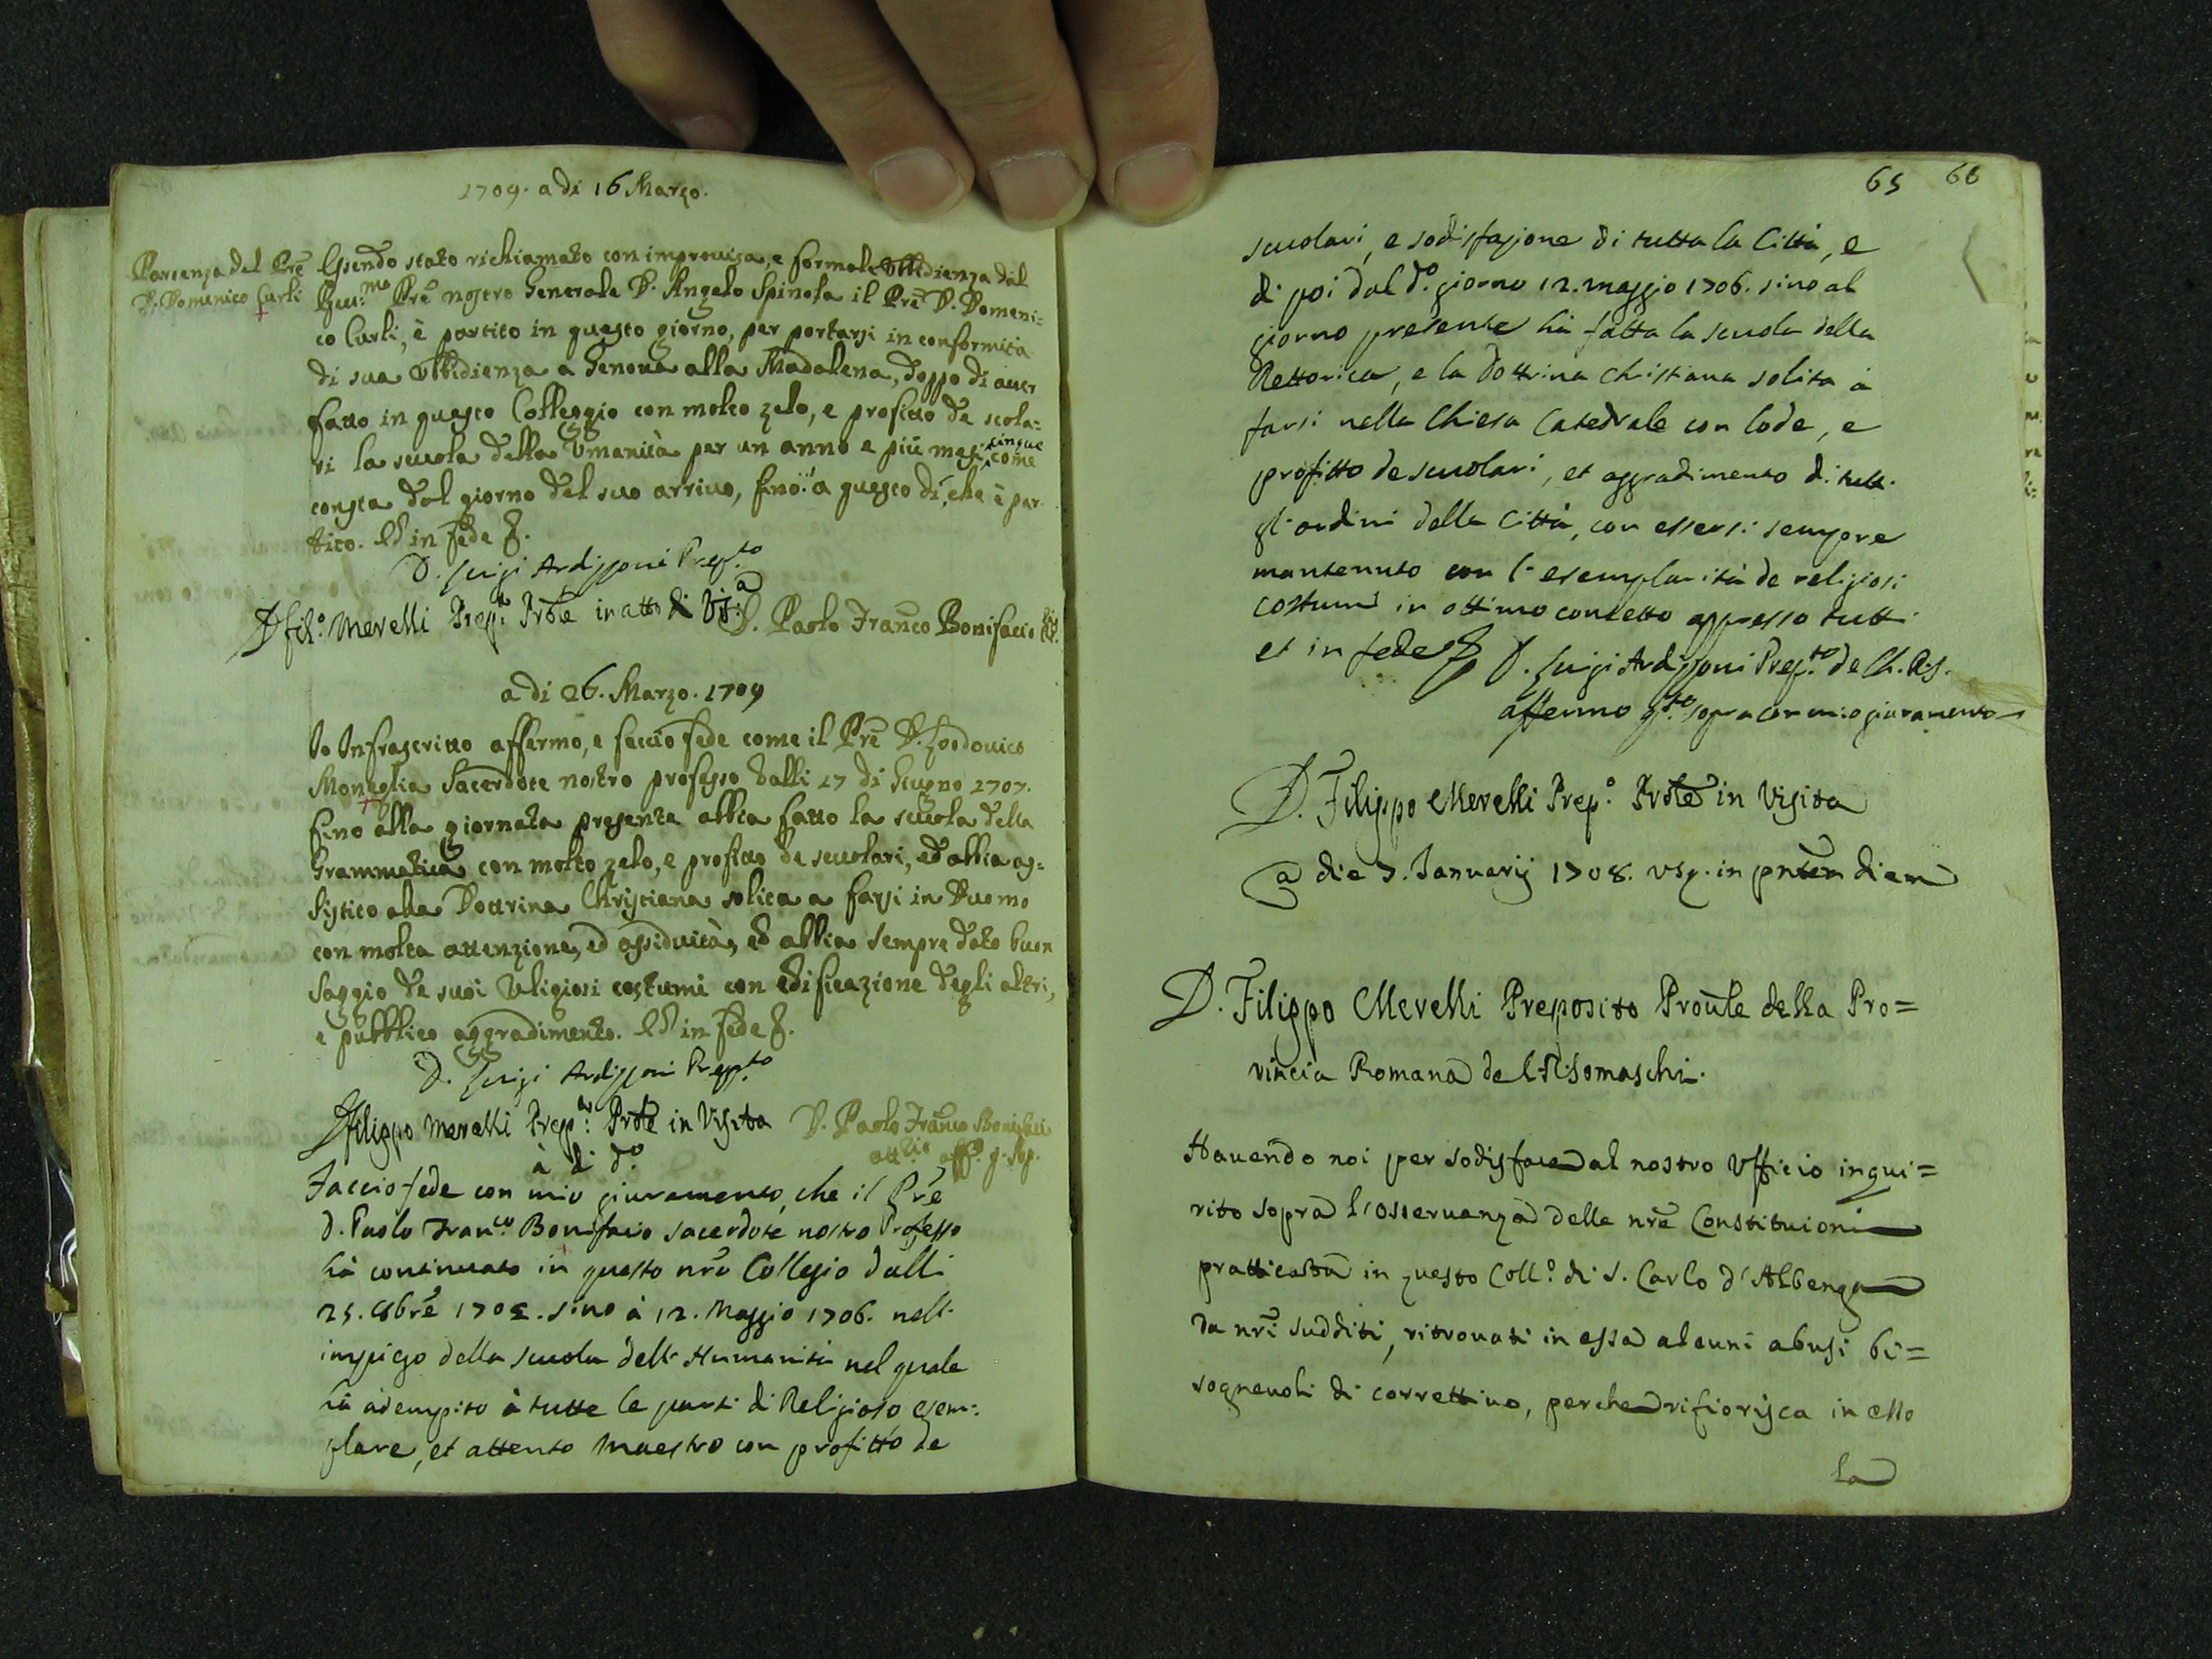 1709. a di 16 Marzo.
Partenza del Prē
D. Domenico Carli
Essendo stato richiamato con improuisa, e formale Vbbidienza dal
Reu.mo Prē nostro Generale D. Angelo Spinola il Prē D. Domeni:
co Carli, è partito in questo giorno, per portarsi in conformità
di sua Vbbidienza a Genoua alla Madalena, doppo di auer
fatto in questo Colleggio con molto zelo, e profitto de scola:
ri la scuola della Vmanità per un anno e più mesi cinque come
consta dal giorno del suo arriuo, fino a questo dì, che è par
tito. Ed in fede
D. Luigi Ardizzoni Prep.to
D fil.o Merelli Prep.to Prōle in atto di Vis.a
D. Paolo Franco Bonifacio
a di 26. Marzo. 1709
Io Infrascritto affermo, e faccio fede come il Prē D. Lodouico
Moneglia Sacerdote nostro professo dalli 17 di Giugno 1707.
fino alla giornata presente abbia fatto la scuola della
Grammatica con molto zelo, e profitto de scuolari, ed abbia as:
sistito alla Dottrina Christiana solita a farsi in Duomo
con molta attenzione, ed assiduità, ed abbia sempre dato buon
saggio de suoi Religiosi costumi con edificazione degli altri,
e pubblico aggradimento. Ed in fede
D. Luigi Ardizzoni Prep.to
D filippo Merelli Prep.to Prōle in Visita
D. Paolo Franco Bonifacio
att.rio aff.o q. sop.
à di d.o
Faccio fede con mio giuramento, che il Prē
D. Paolo Fran.co Bonifacio sacerdote nostro Professo
hà continuato in questo nrō Collegio dalli
25. 8brē 1705. sino à 12. Maggio 1706. nell'
impiego della scuola dell'Humanità nel quale
hà adempito à tutte le parti di Religioso esem:
plare, et attento Maestro con profitto de
65 66
scuolari, e sodisfazione di tutta la Città, e
di poi dal d.o giorno 12. maggio 1706. sino al
giorno presente hà fatta la scuola della
Rettorica, e la dottrina christiana solita à
farsi nella Chiesa Catedrale con lode, e
profitto de scuolari, et aggradimento di tutti
gl'ordini della Città, con essersi sempre
mantenuto con l'esemplarità de religiosi
costumi in ottimo concetto appresso tutti
et in fede
D. Luigi Ardizzoni Prep.to de Ch. R. S.
affermo q.to sopra con mio giuramento
D. Filippo Merelli Prep.o Prōle in Visita
a die 7. Januarij 1708. vsq. in pntem diem
D. Filippo Merelli Preposito Prōule della Pro=
vincia Romana de C. R. Somaschi.
Hauendo noi per sodisfare al nostro Vfficio inqui=
rito sopra l'osseruanza delle nrē Constituioni
pratticata in questo Coll.o di S. Carlo d'Albenga
da nrī sudditi, ritrouati in essa alcuni abusi bi=
sogneuoli di correttiuo, perche rifiorisca in esso
la